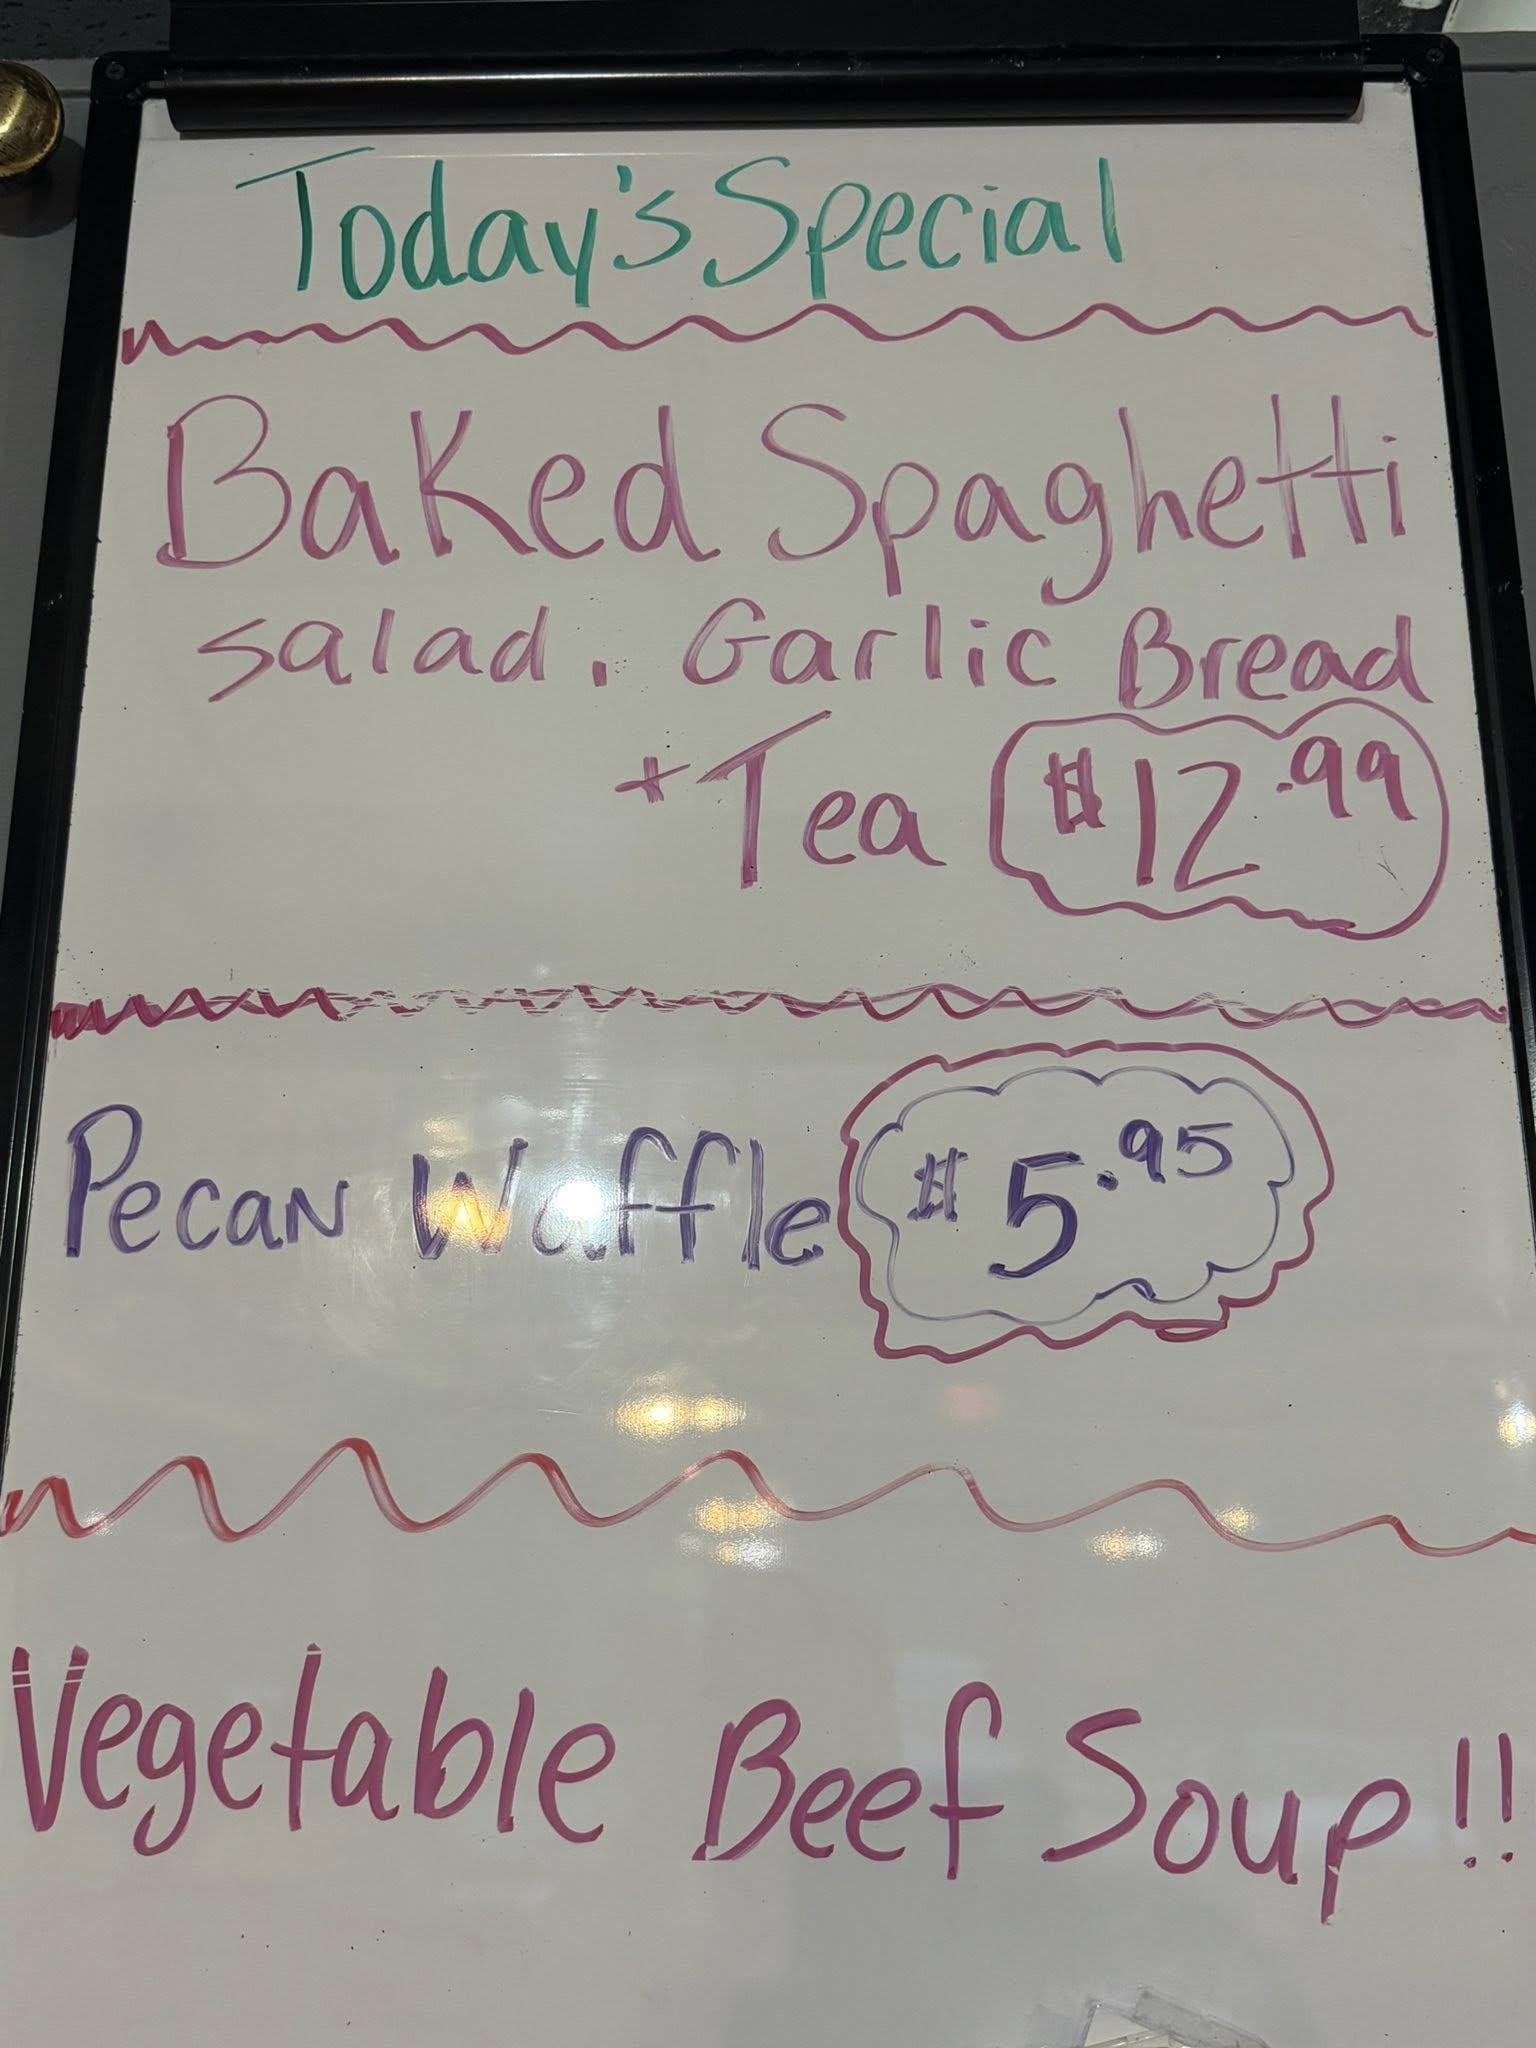 Today's Special
Baked Spaghetti
Salad. Garlic Bread
+ Tea $12.99
Pecan Waffle $5.95
Vegetable Beef Soup!!